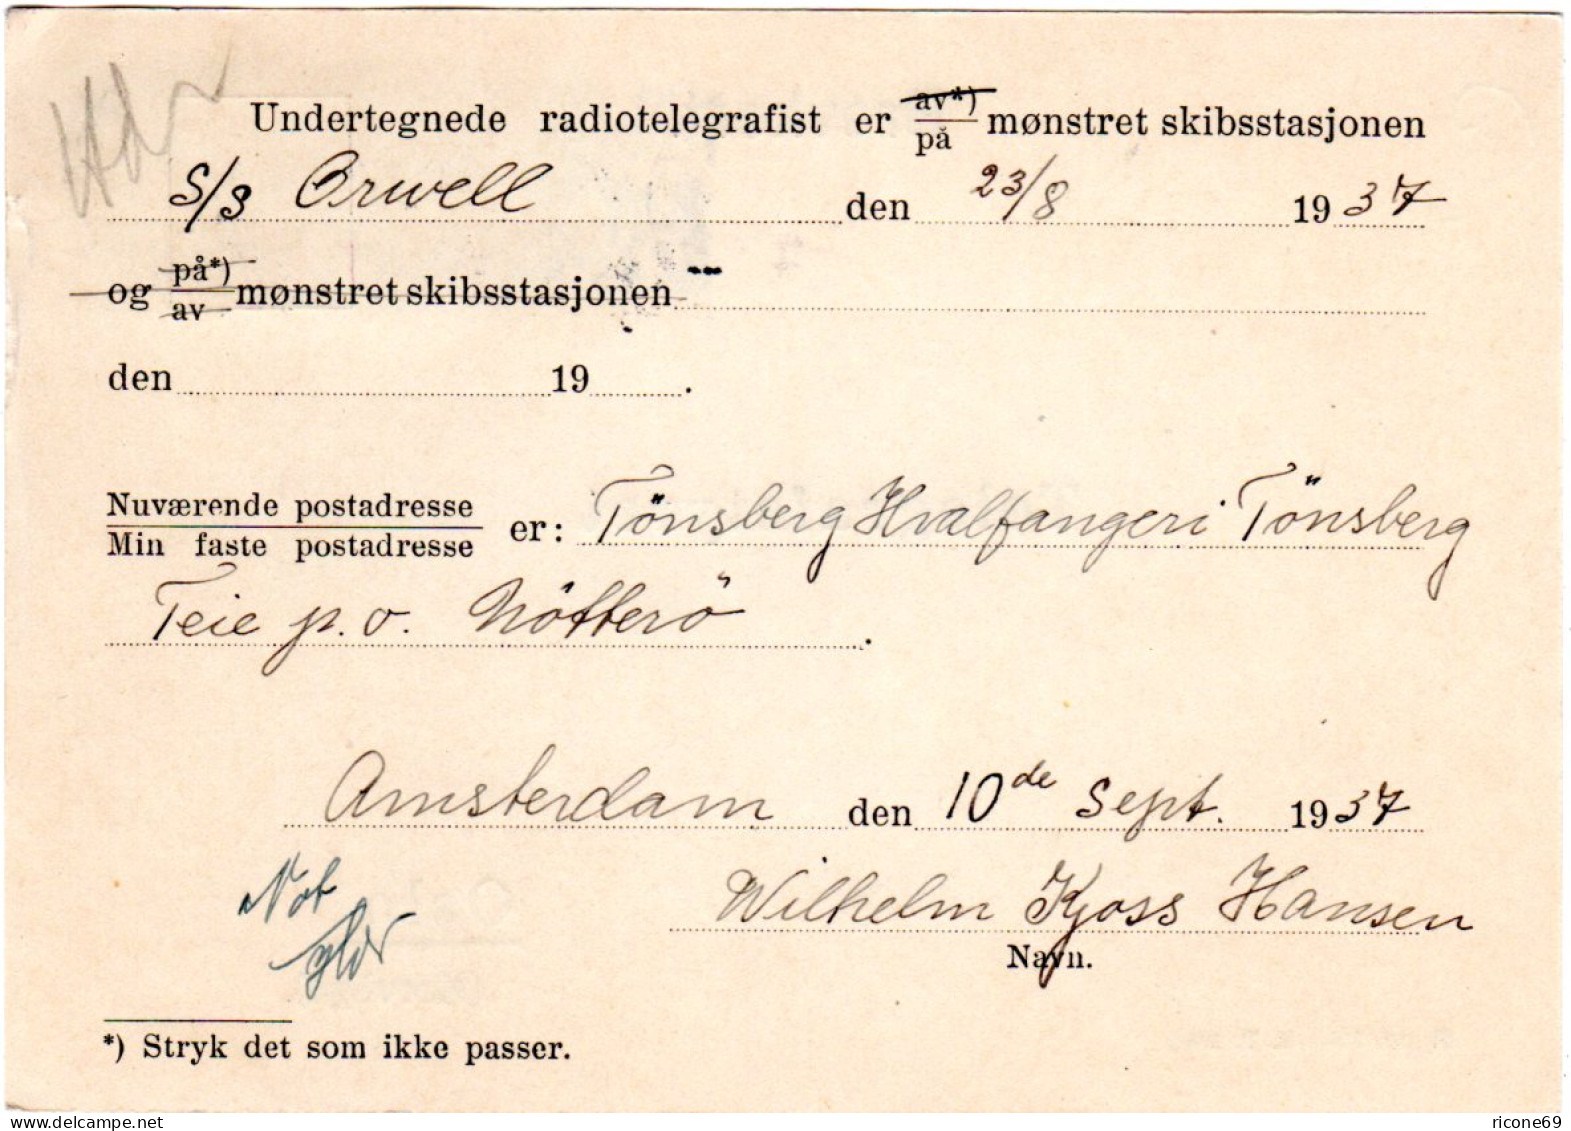 Undertegnede radiotelegrafist er av*) på mønstret skibsstasjonen
S/S Orwell den 23/8 1937
og på*) av mønstret skibsstasjonen
den 19 .
Nuværende postadresse
Min faste postadresse er: Tönsberg Hvalfangeri Tönsberg
Teie p.o. Nötterö .
Amsterdam den 10de Sept. 1937
Wilhelm Kjoss Hansen
Navn.
Not
*) Stryk det som ikke passer.
delcampe.net
ricone69